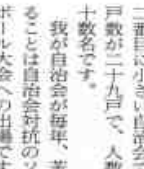 二番目に小さい自治会で
戸数が二十九戸で、人数
十数名です。
我が自治会が毎年、苦
ることは自治会対抗のソ
ボール大会への出場です